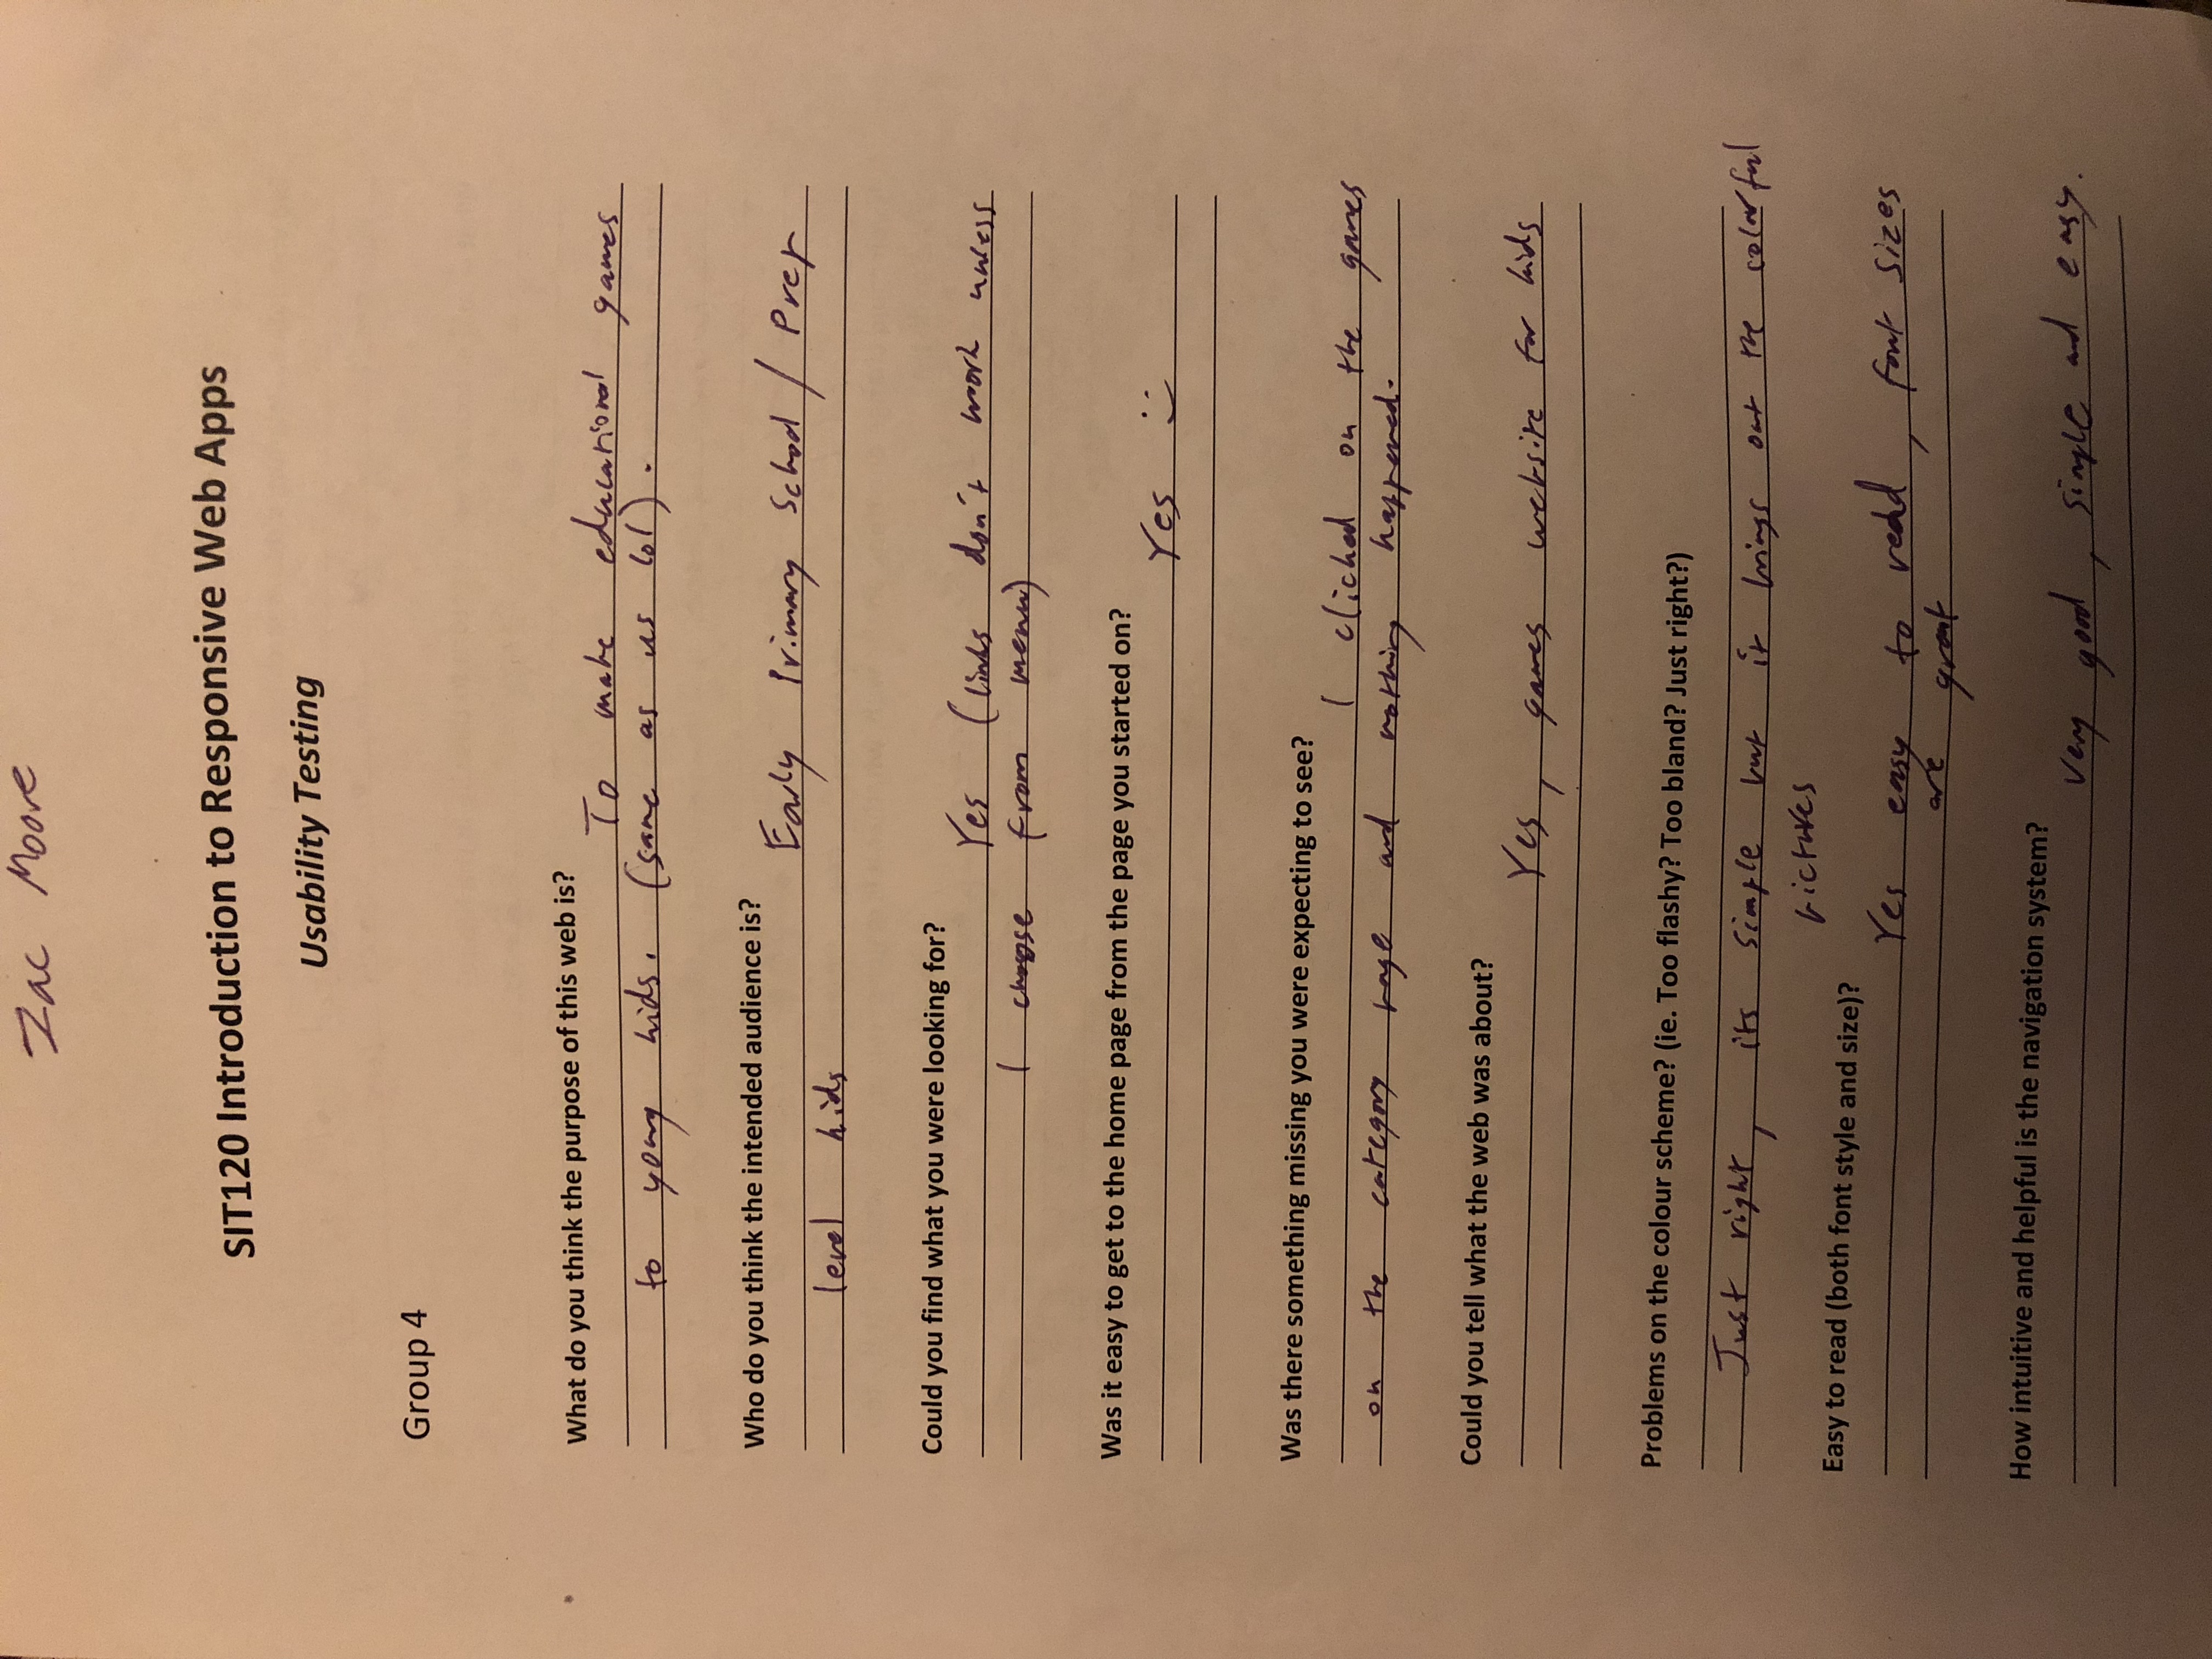 Zac Moore
SIT120 Introduction to Responsive Web Apps
Usability Testing
Group 4
What do you think the purpose of this web is?
To make educational games
to young kids. (same as us lol).
Who do you think the intended audience is?
Early Primary School / Prep
level kids
Could you find what you were looking for?
Yes (links don't work unless
I choose from menu)
Was it easy to get to the home page from the page you started on?
Yes :)
Was there something missing you were expecting to see?
I clicked on the games
on the category page and nothing happened.
Could you tell what the web was about?
Yes, games website for kids
Problems on the colour scheme? (ie. Too flashy? Too bland? Just right?)
Just right, its simple but it brings out the colorful
pictures
Easy to read (both font style and size)?
Yes easy to read, font sizes
are great
How intuitive and helpful is the navigation system?
Very good, simple and easy.